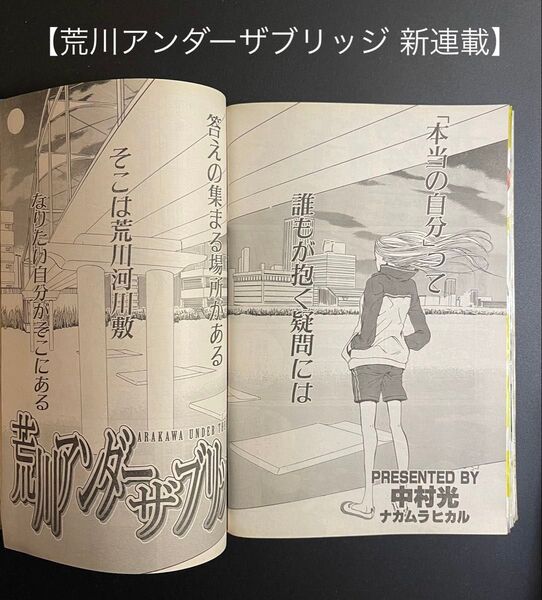 【荒川アンダーザブリッジ 新連載】
「本当の自分」って
誰もが抱く疑問には
答えの集まる場所がある
そこは荒川河川敷
なりたい自分がそこにある
ARAKAWA UNDER
荒川アンダー
ザブリッ
PRESENTED BY
中村光
ナカムラヒカル